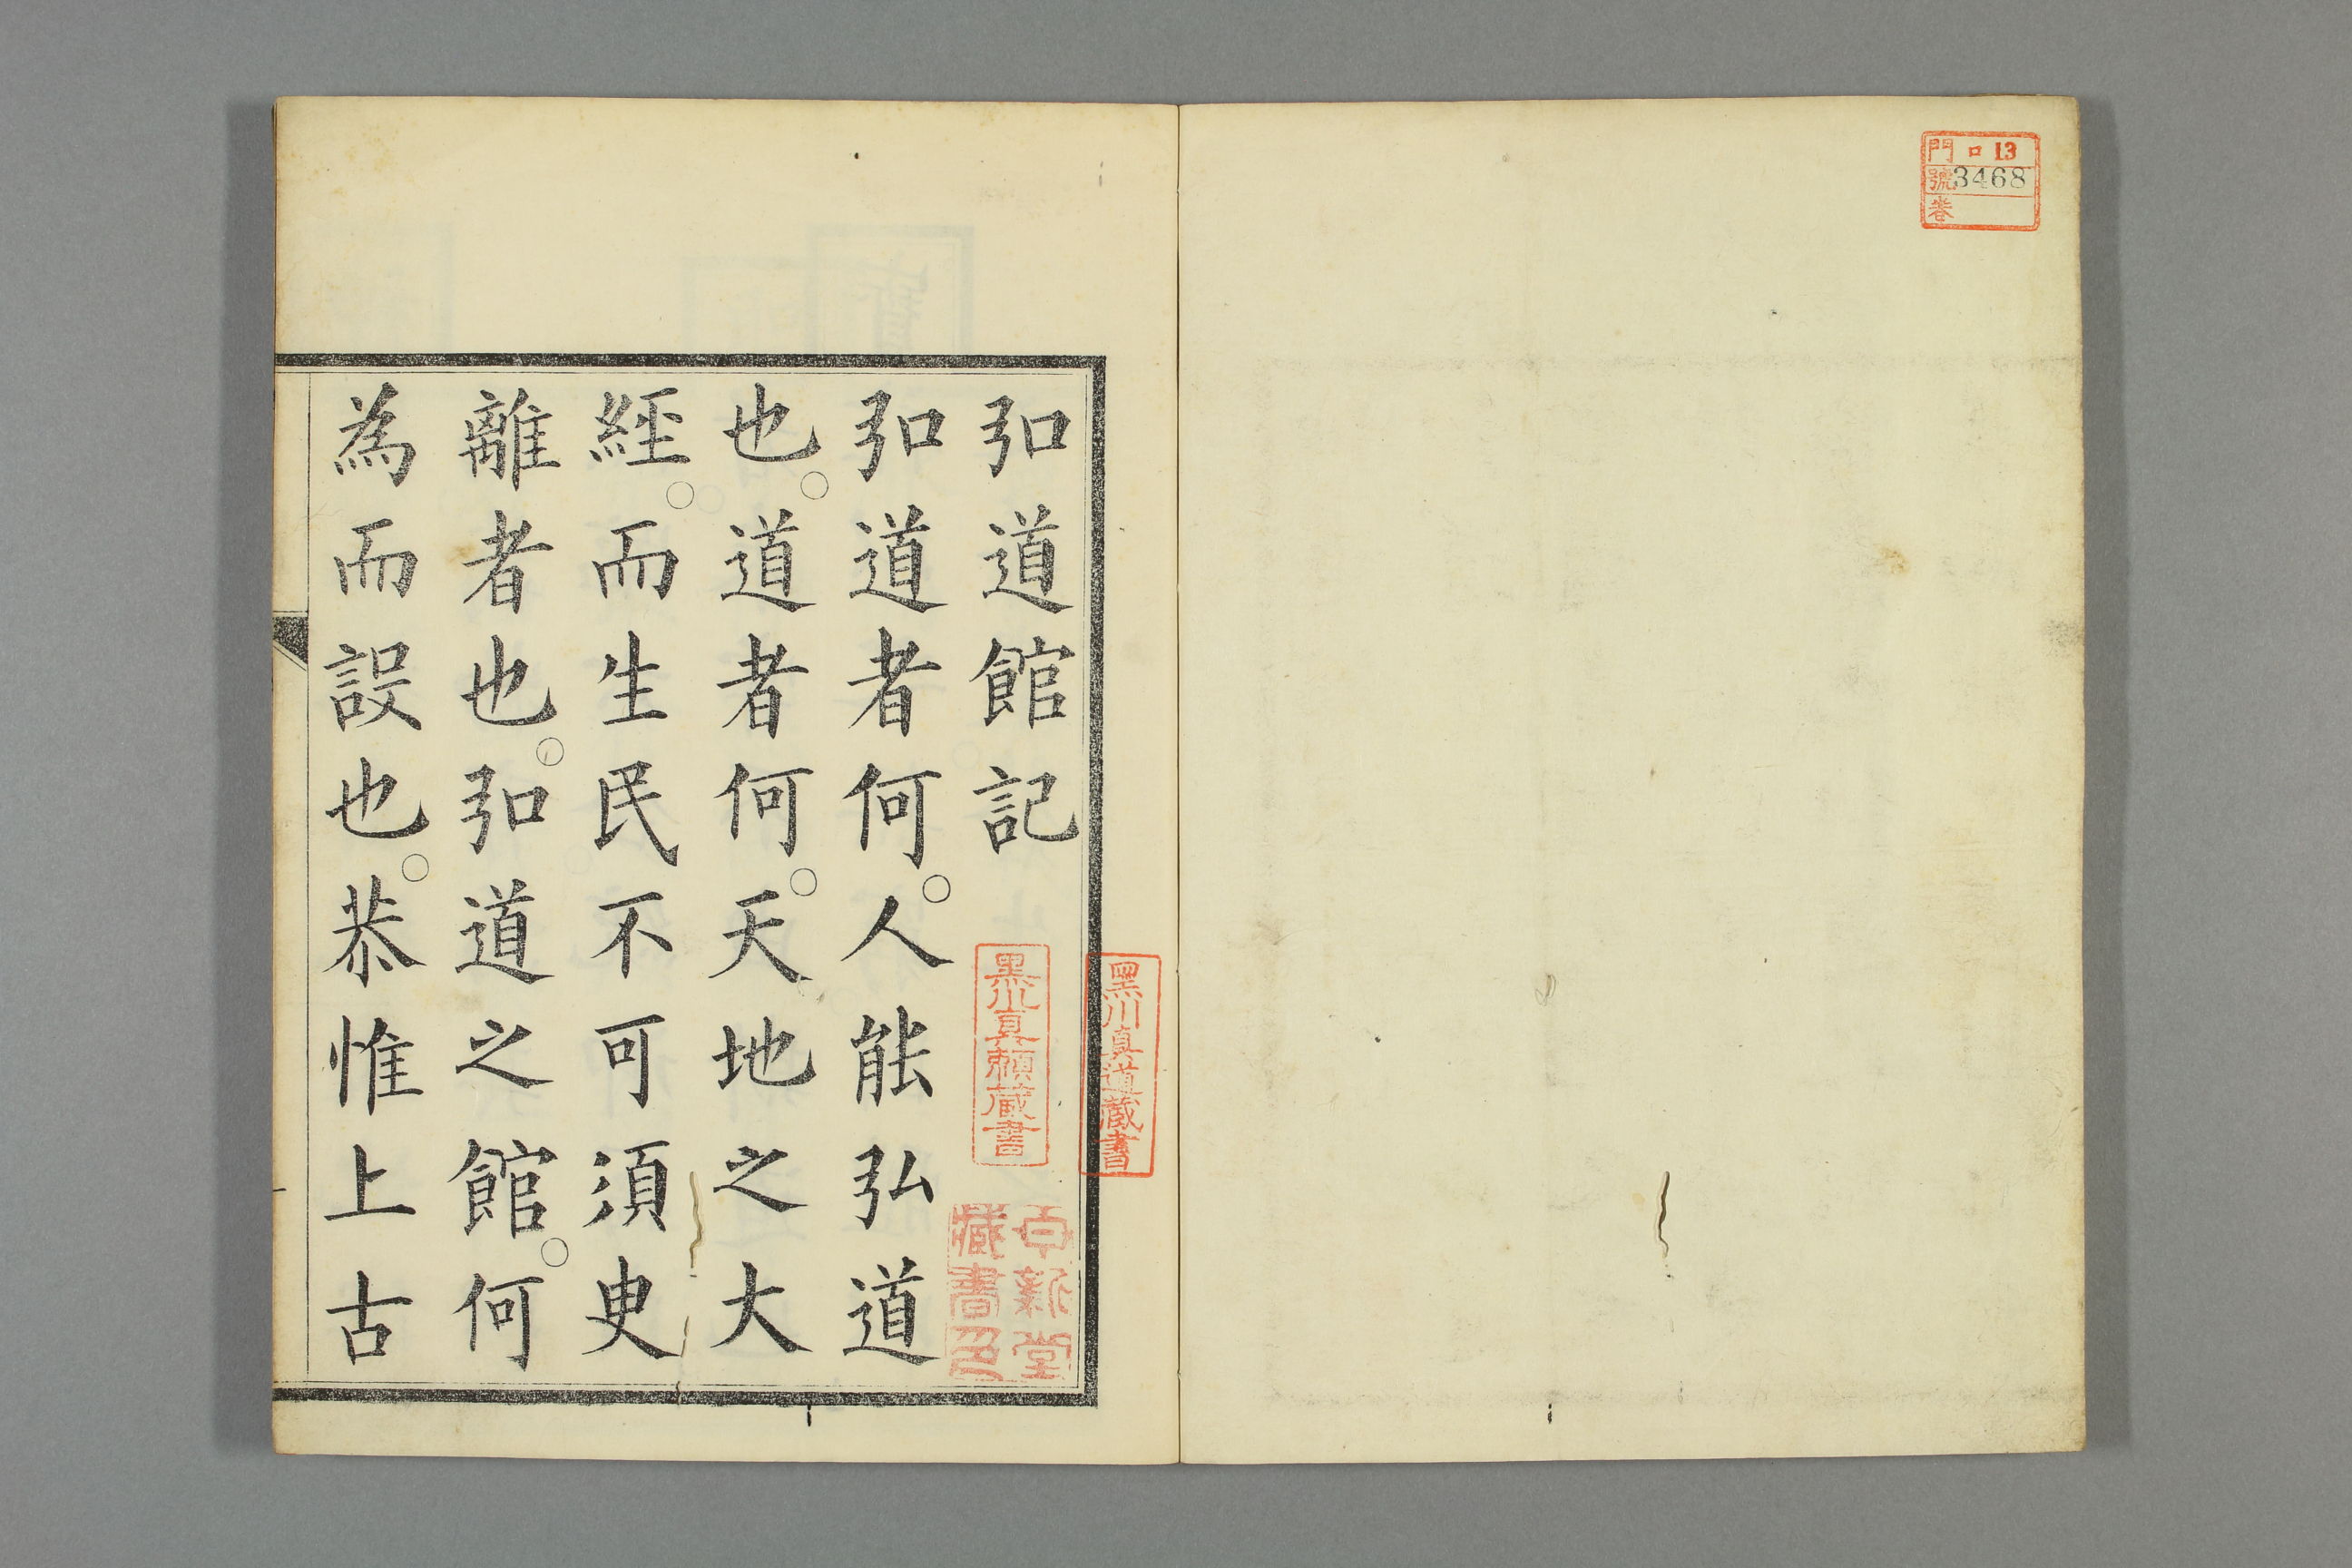 門 ロ 13
號 3468
卷
弘道館記
弘道者何。人能弘道
也。道者何。天地之大
經。而生民不可須臾
離者也。弘道之館。何
為而設也。恭惟上古
黒川真頼蔵書
黒川真道蔵書
藏書